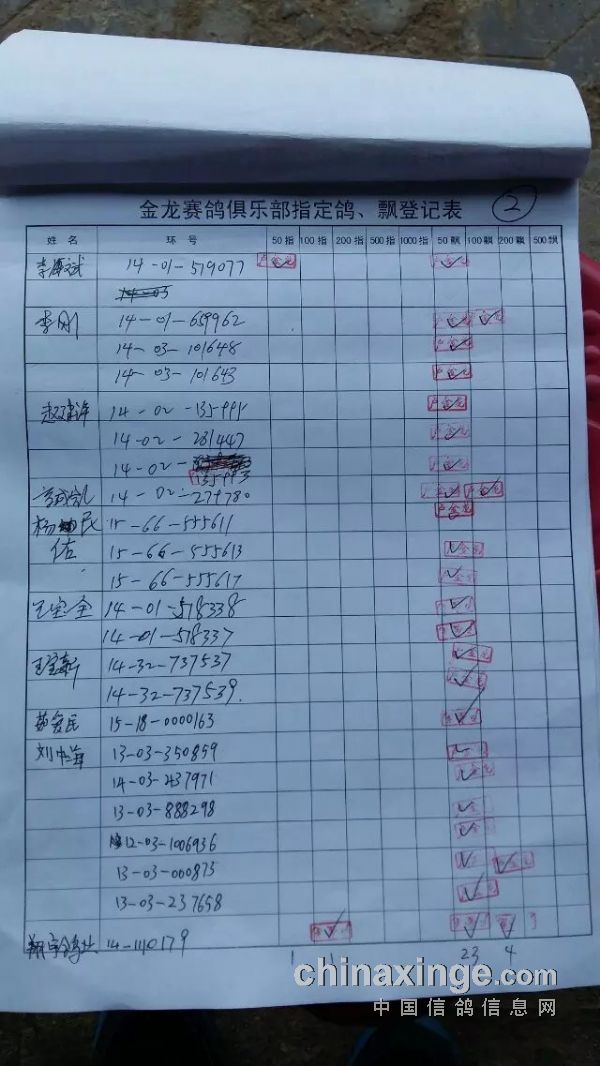 金龙赛鸽俱乐部指定鸽、飘登记表 ②
姓名 环号 50指 100指 200指 500指 1000指 50飘 100飘 200飘 500飘
14-01-579077
李刚 14-01-659962
14-03-101648
14-03-101643
14-02-135991
14-02-281447
14-02-135993
14-02-279780
杨 民 15-66-555611
佑 15-66-555613
15-66-555617
王宝金 14-01-578338
14-01-578337
王宝新 14-32-737537
14-32-737539.
15-18-0000163
刘中海 13-03-350859
14-03-437971
13-03-888298
12-03-1006936
13-03-000875
13-03-237658
翔宇鸽业 14-1110179
1 11 23 4
chinaxinge.com
中国信鸽信息网